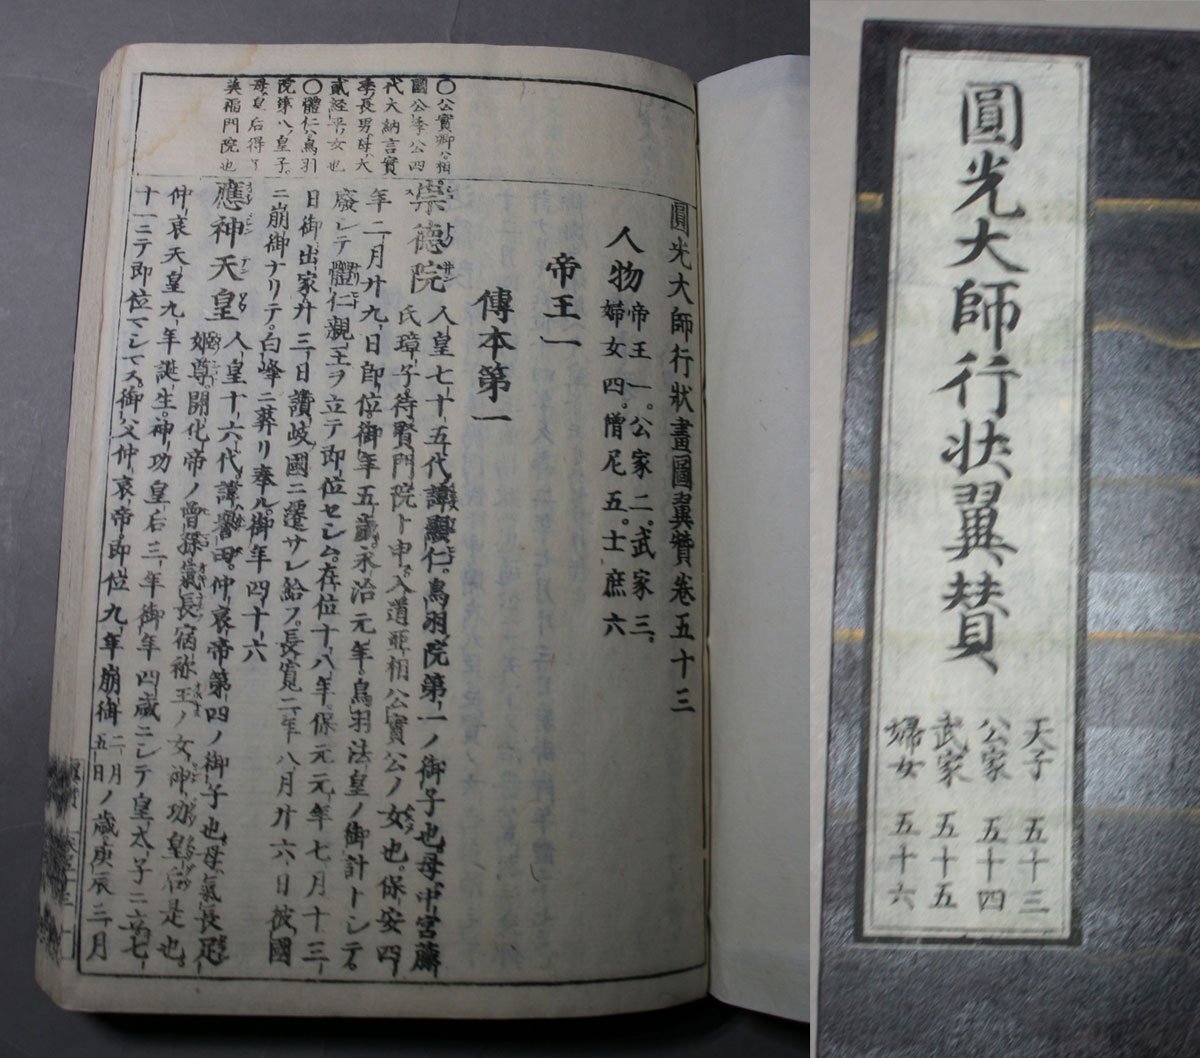 圓光大師行狀翼賛
天子 五十三
公家 五十四
武家 五十五
婦女 五十六
〇公實卿ハ相
國公季公四
代大納言實
季長男母ハ大
貳經平ノ女也
〇體仁ハ鳥羽
院第八ノ皇子
母皇后得子
美福門院也
圓光大師行狀畫圖翼贊卷五十三
人物 帝王一。公家二。武家三。
婦女四。僧尼五。士庶六
帝王一
傳本第一
崇德院 人皇七十五代諱顯仁。鳥羽院第一ノ御子也母ハ中宮藤
氏璋子待賢門院ト申。入道亞相公實公ノ女也。保安四
年二月廿九日卽位。御年五歲。永治元年。鳥羽法皇ノ御計トシテ。
廢シテ體仁親王ヲ立テ卽位セシム。在位十八年。保元元年七月十三
日御出家廿三日讚岐國ニ遷サレ給フ。長寬二年八月廿六日彼國
ニ崩御ナリテ。白峰ニ葬リ奉ル。御年四十六
應神天皇 人皇十六代諱譽田。仲哀帝第四ノ御子也母ハ氣長足
姬尊。開化帝ノ曾孫氣長宿祢王ノ女。神功皇后是也。
仲哀天皇九年誕生。神功皇后三年御年四歲ニシテ皇太子ニ立七
十一ニテ卽位マシマス。御父仲哀帝卽位九年崩御二月五日ノ歲庚辰三月